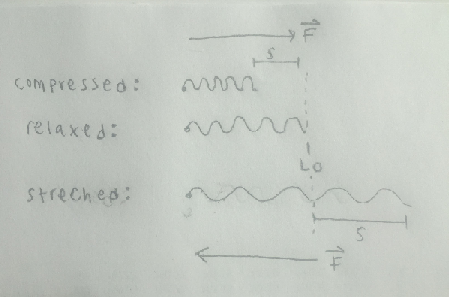 F
S
compressed:
relaxed:
L0
streched:
S
F